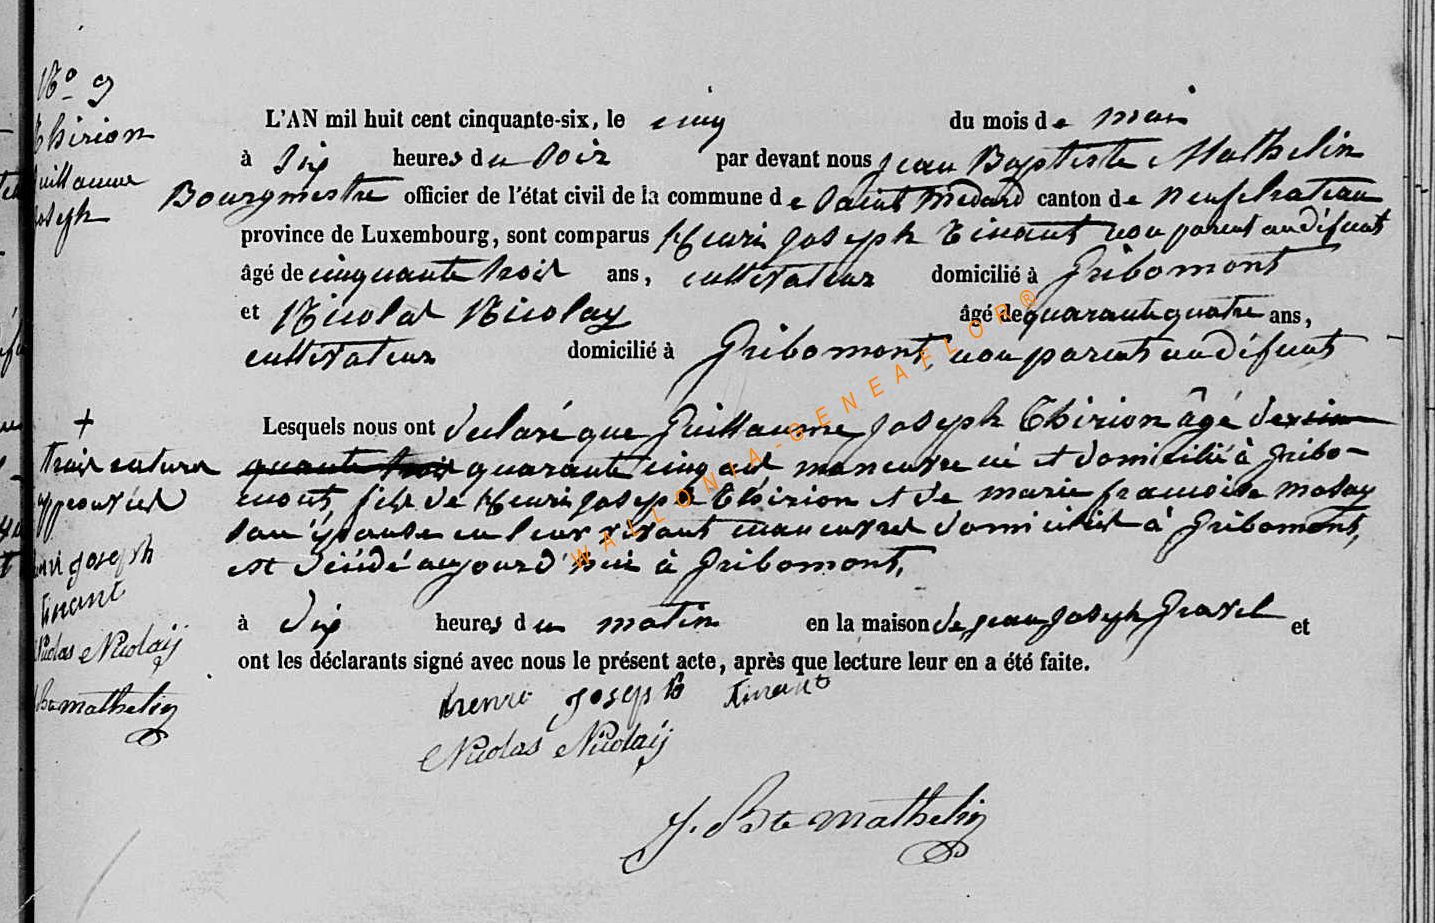 N° 9
Thirion
Guillaume
Joseph
L'AN mil huit cent cinquante-six, le cinq du mois de mai
à Six heures du Soir par devant nous Jean Baptiste Mathelin
Bourgmestre officier de l'état civil de la commune de Saint Médard canton de Neufchateau
province de Luxembourg, sont comparus Henri Joseph Tinant non parent au défunt
âgé de cinquante trois ans, cultivateur domicilié à Gribomont
et Nicolas Nicolay âgé de quarante quatre ans,
cultivateur domicilié à Gribomont, non parent au défunt
Lesquels nous ont déclaré que Guillaume Joseph Thirion âgé de cin
quante trois quarante cinq ans manœuvre né et domicilié à Gribo-
mont, fils de Henri Joseph Thirion et de marie françoise
son épouse en leur vivant manœuvres domiciliés à Gribomont,
est décédé aujourd'hui à Gribomont,
à dix heures du matin en la maison de Jean Joseph et
ont les déclarants signé avec nous le présent acte, après que lecture leur en a été faite.
henri Joseph tinant
Nicolas Nicolaij
J. Bte mathelin
+
trois ratures
approuvées
henri Joseph
tinant
Nicolas Nicolaij
J Bte mathelin
WALLONIA-GENEAFLOR®